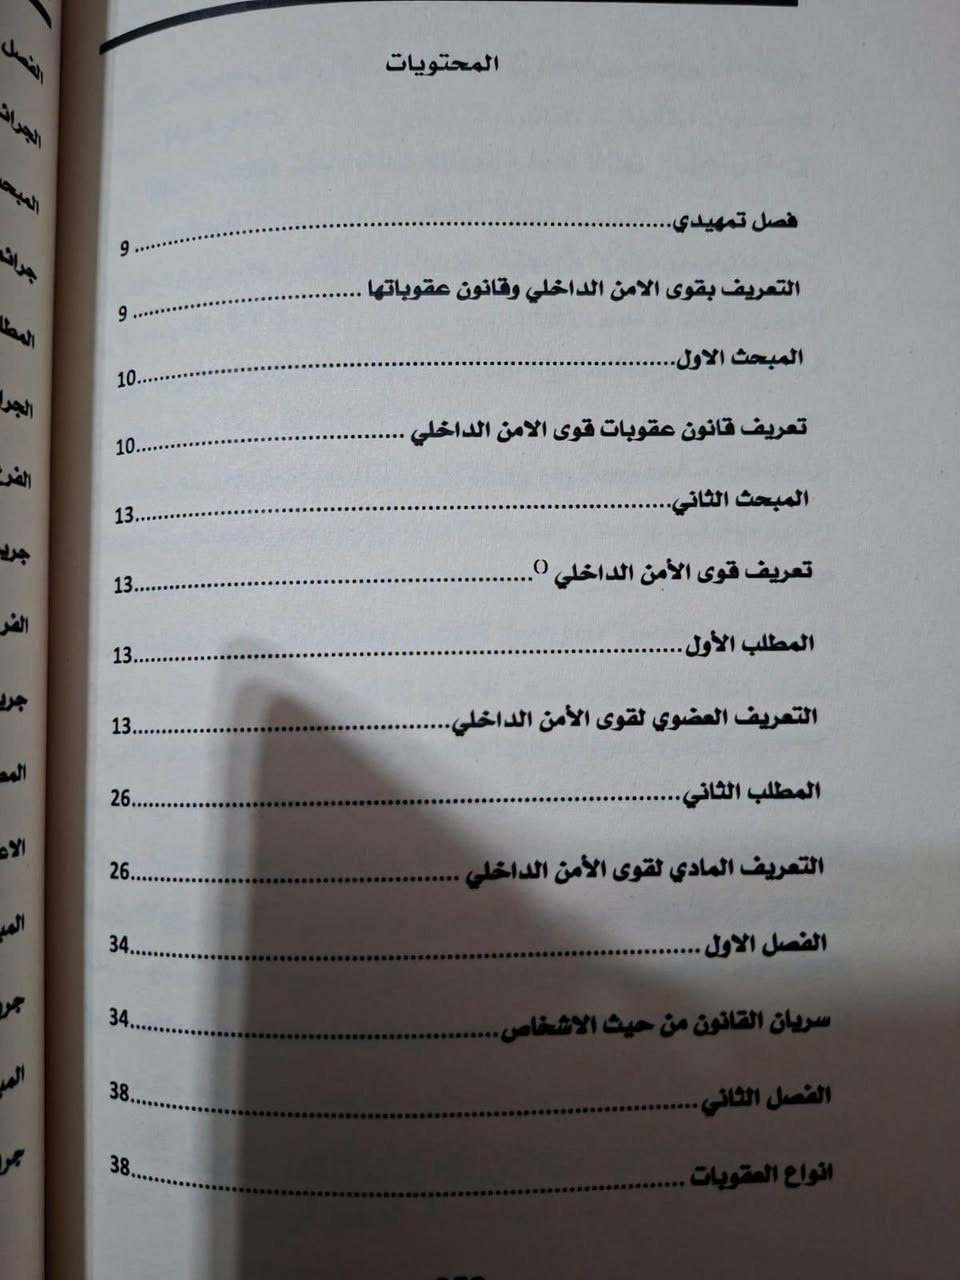 المحتويات
فصل تمهيدي........................................................................ 9
التعريف بقوى الامن الداخلي وقانون عقوباتها ............................... 9
المبحث الاول........................................................................10
تعريف قانون عقوبات قوى الامن الداخلي ....................................10
المبحث الثاني........................................................................13
تعريف قوى الأمن الداخلي ().....................................................13
المطلب الأول........................................................................13
التعريف العضوي لقوى الأمن الداخلي..........................................13
المطلب الثاني........................................................................26
التعريف المادي لقوى الأمن الداخلي ...........................................26
الفصل الاول ........................................................................34
سريان القانون من حيث الاشخاص...............................................34
الفصل الثاني........................................................................38
انواع العقوبات ......................................................................38
الفصل
المبح